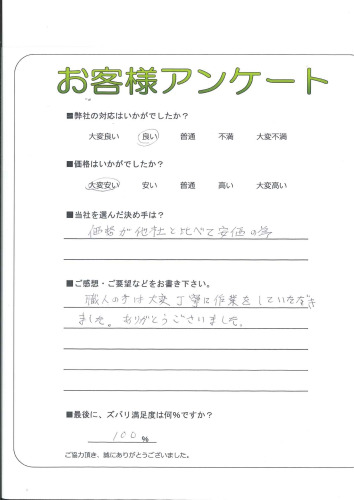 お客様アンケート
■弊社の対応はいかがでしたか?
大変良い 良い 普通 不満 大変不満
■価格はいかがでしたか?
大変安い 安い 普通 高い 大変高い
■当社を選んだ決め手は?
価格が他社と比べて安価の為
■ご感想・ご要望などをお書き下さい。
職人の方は大変丁寧に作業をしていただき
ました。ありがとうございました。
■最後に、ズバリ満足度は何%ですか?
100 %
ご協力頂き、誠にありがとうございました。